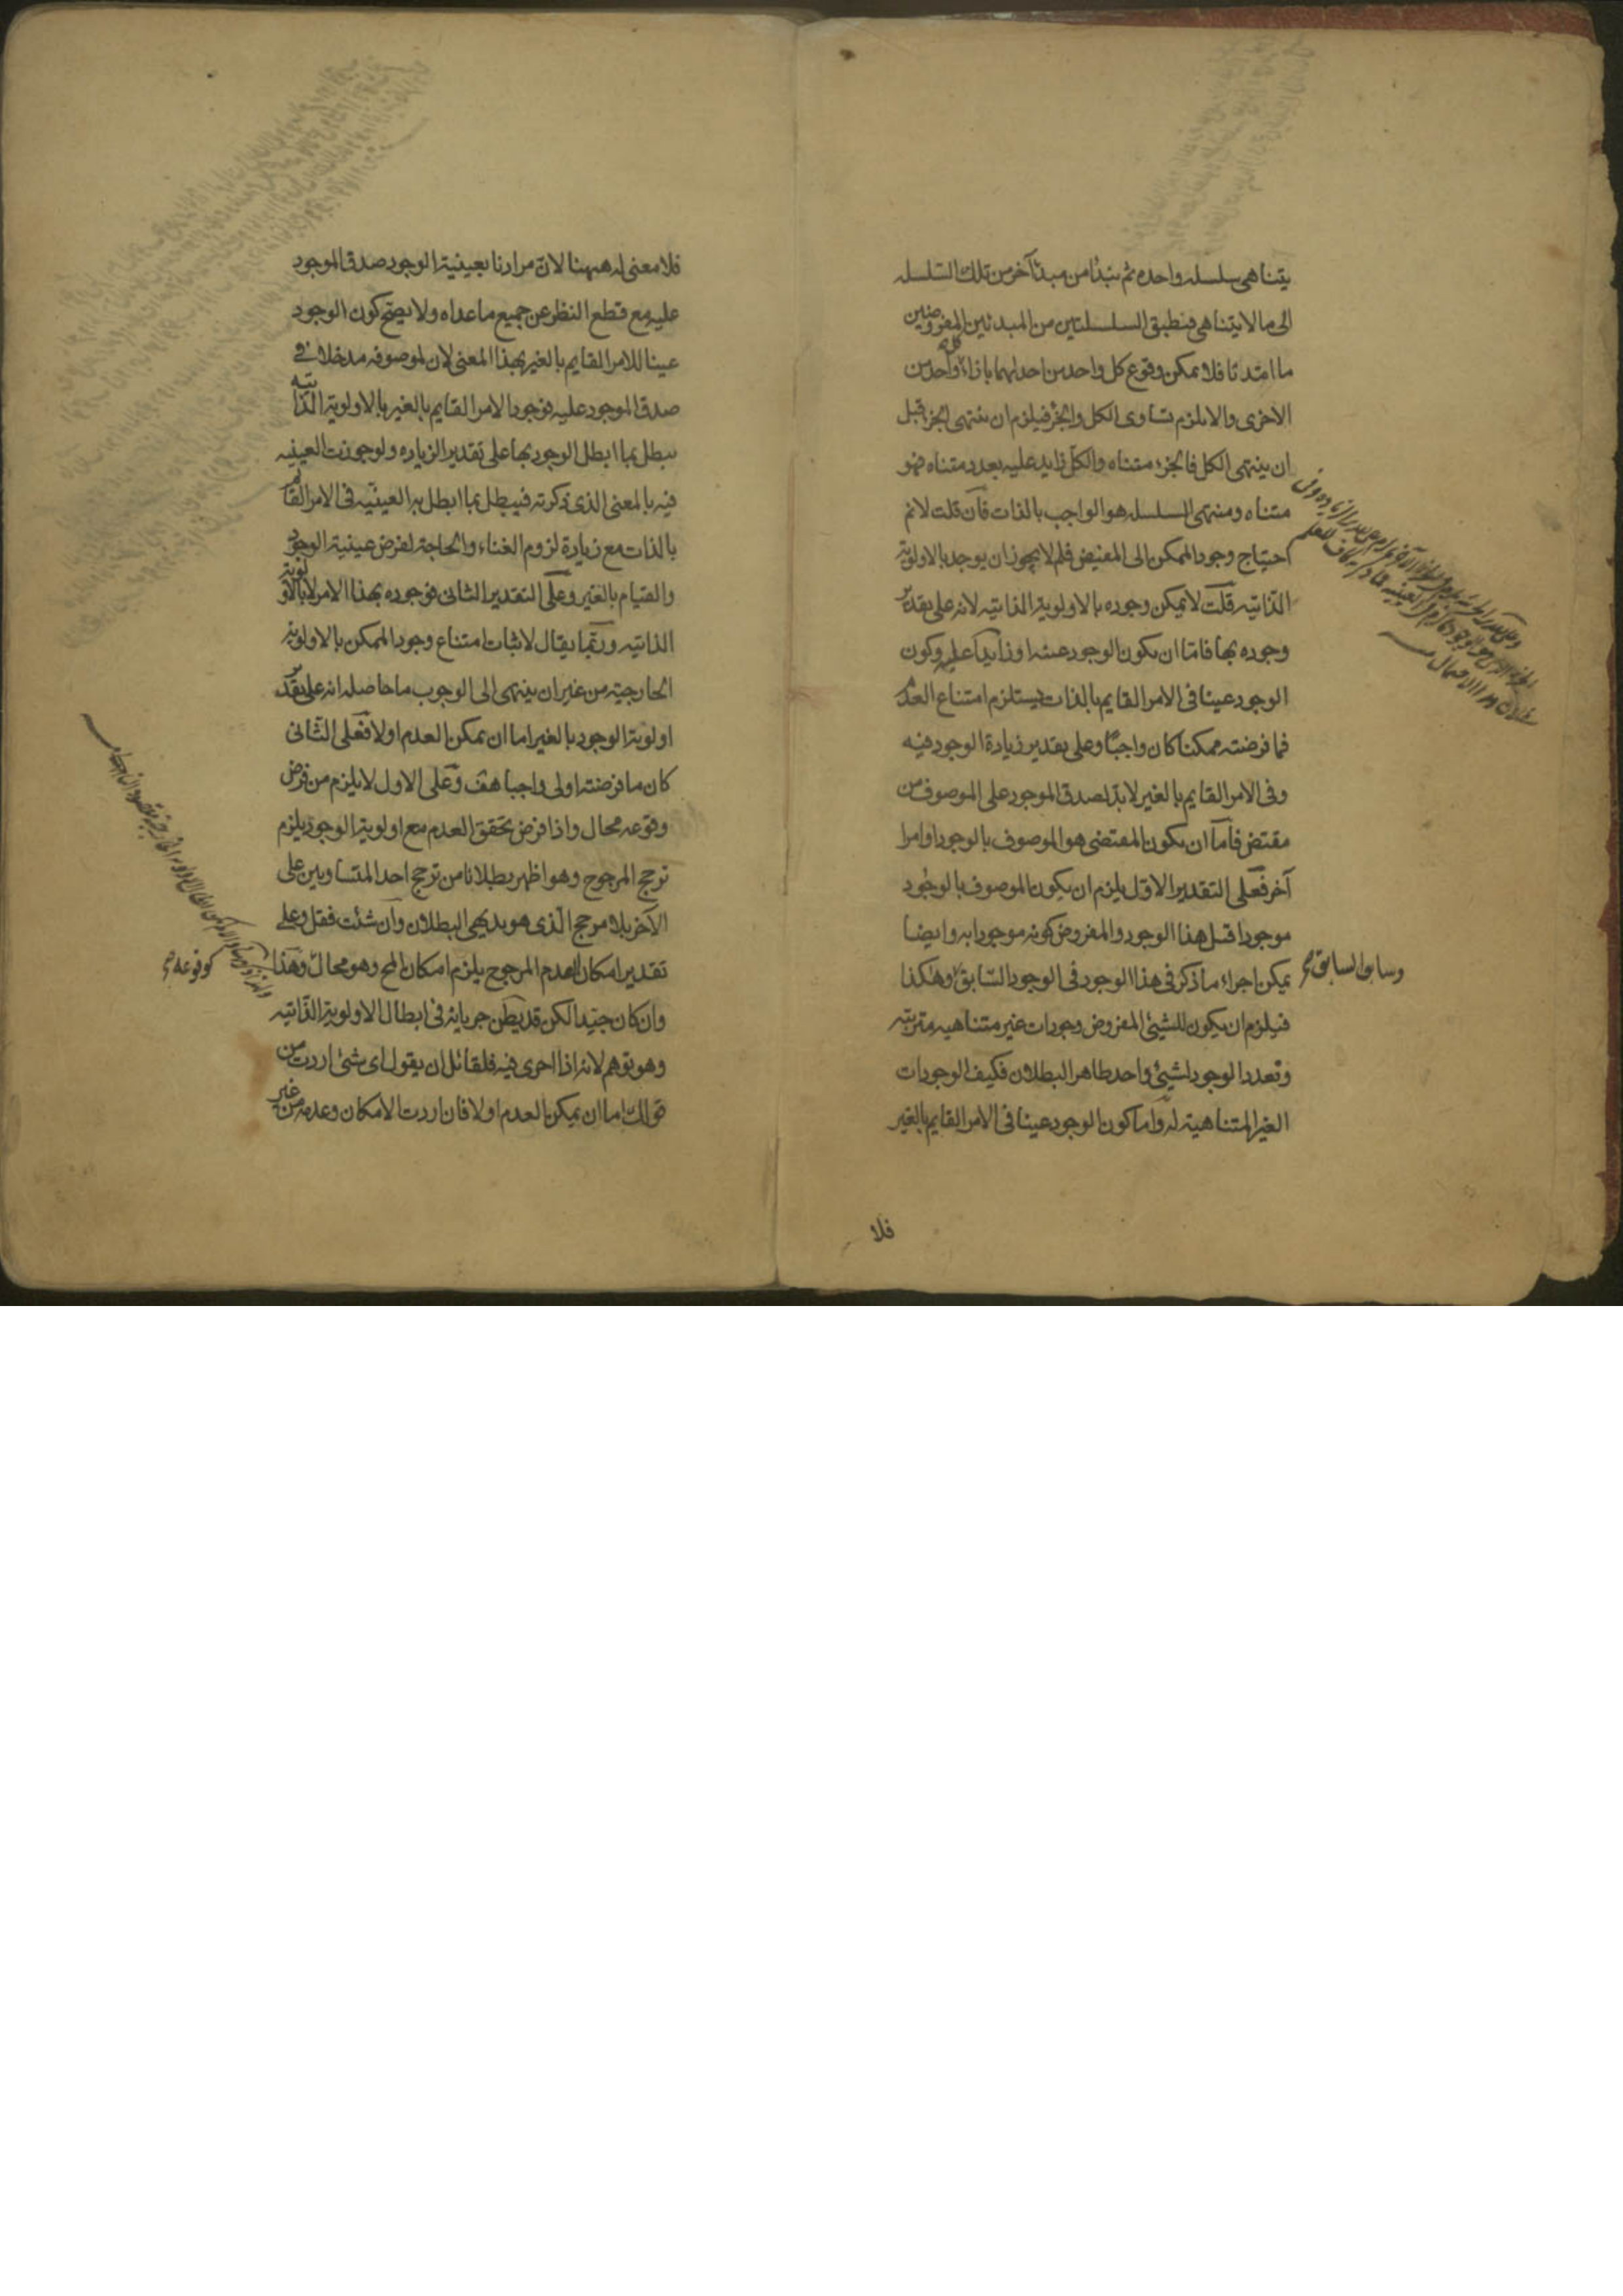 يتناهى سلسله واحده ثم نبدأ من مبدأ آخر من تلك السّلسله
الى ما لا يتناهى فنطبق السلسلتين من المبدئين المفروضين
ما امتدتا فلا يمكن وقوع كل واحد من احدلهما بازاء كل واحد من
الاخرى والا يلزم تساوى الكل والجزء فيلزم ان ينتهى الجزء قبل
ان ينتهى الكل فالجزء متناه والكلّ زايد عليه بعدد متناه فهو
متناه ومنتهى السلسله هو الواجب بالذات فان قلت لا نم
احتياج وجود الممكن الى المفيض فلم لا يجوز ان يوجد بالاولوية
الذّاتيه قلت لا يمكن وجوده بالاولوية الذاتيه لانه على تقدير
وجوده بها فامّا ان يكون الوجود عينه او زايدا عليه وكون
الوجود عينا فى الامر القايم بالذات يستلزم امتناع العدم
فما فرضته ممكنا كان واجبًا وعلى تقدير زيادة الوجود فيه
وفى الامر القايم بالغير لا بدّ لصدق الموجود على الموصوف من
مقتض فامّا ان يكون المقتضى هو الموصوف بالوجود او امرا
آخر فعلى التقدير الاوّل يلزم ان يكون الموصوف بالوجود
موجودا قبل هذا الوجود والمفروض كونه موجودا به وايضا
يمكن اجراء ما ذكر فى هذا الوجود فى الوجود السّابق وهكذا
وسابق السابق صح
فيلزم ان يكون للشيئ المفروض وجودات غير متناهيه مترتبه
وتعدد الوجود لشيئ واحد ظاهر البطلان فكيف الوجودات
الغير المتناهية له وامّا كون الوجود عينا فى الامر القايم بالغير
فلا
فلا معنى له ههنا لانّ مرادنا بعينية الوجود صدق الموجود
عليه مع قطع النظر عن جميع ما عداه ولا يصحّ كون الوجود
عينا للامر القايم بالغير بهذا المعنى لان لموصوفه مدخلا فى
صدق الموجود عليه فوجود الامر القايم بالغير بالاولوية الذّاتيه
يبطل بما ابطل الوجود بها على تقدير الزياده ولو جوزت العينيه
فيه بالمعنى الذى ذكرته فيبطل بما ابطل به العينيّه فى الامر القائم
بالذات مع زيادة لزوم الغناء والحاجة لفرض عينية الوجود
والقيام بالغير وعلى التقدير الثانى فوجوده بهذا الامر لا بالاولوية
الذاتيه وربّما يقال لاثبات امتناع وجود الممكن بالاولوية
الخارجية من غير ان ينتهى الى الوجوب ما حاصله انه على تقدير
اولوية الوجود بالغير اما ان يمكن العدم او لا فعلى الثّانى
كان ما فرضته اولى واجبا هف وعلى الاول لا يلزم من فرض
وقوعه محال واذا فرض تحقق العدم مع اولوية الوجود يلزم
ترجح المرجوح وهو اظهر بطلانا من ترجح احد المتساويين على
الآخر بلا مرجح الّذى هو بديهى البطلان وان شئت فقل وعلى
تقدير امكان العدم المرجوح يلزم امكان المح وهو محال وهذا
كوقوعه صح
وان كان جيّدا لكن قد يظن جريانه فى ابطال الاولوية الذّاتيه
وهو توهم لانه اذا اجرى فيه فلقائل ان يقول اى شئ اردت من
قولك اما ان يمكن العدم او لا فان اردت الامكان وعدمه من غير